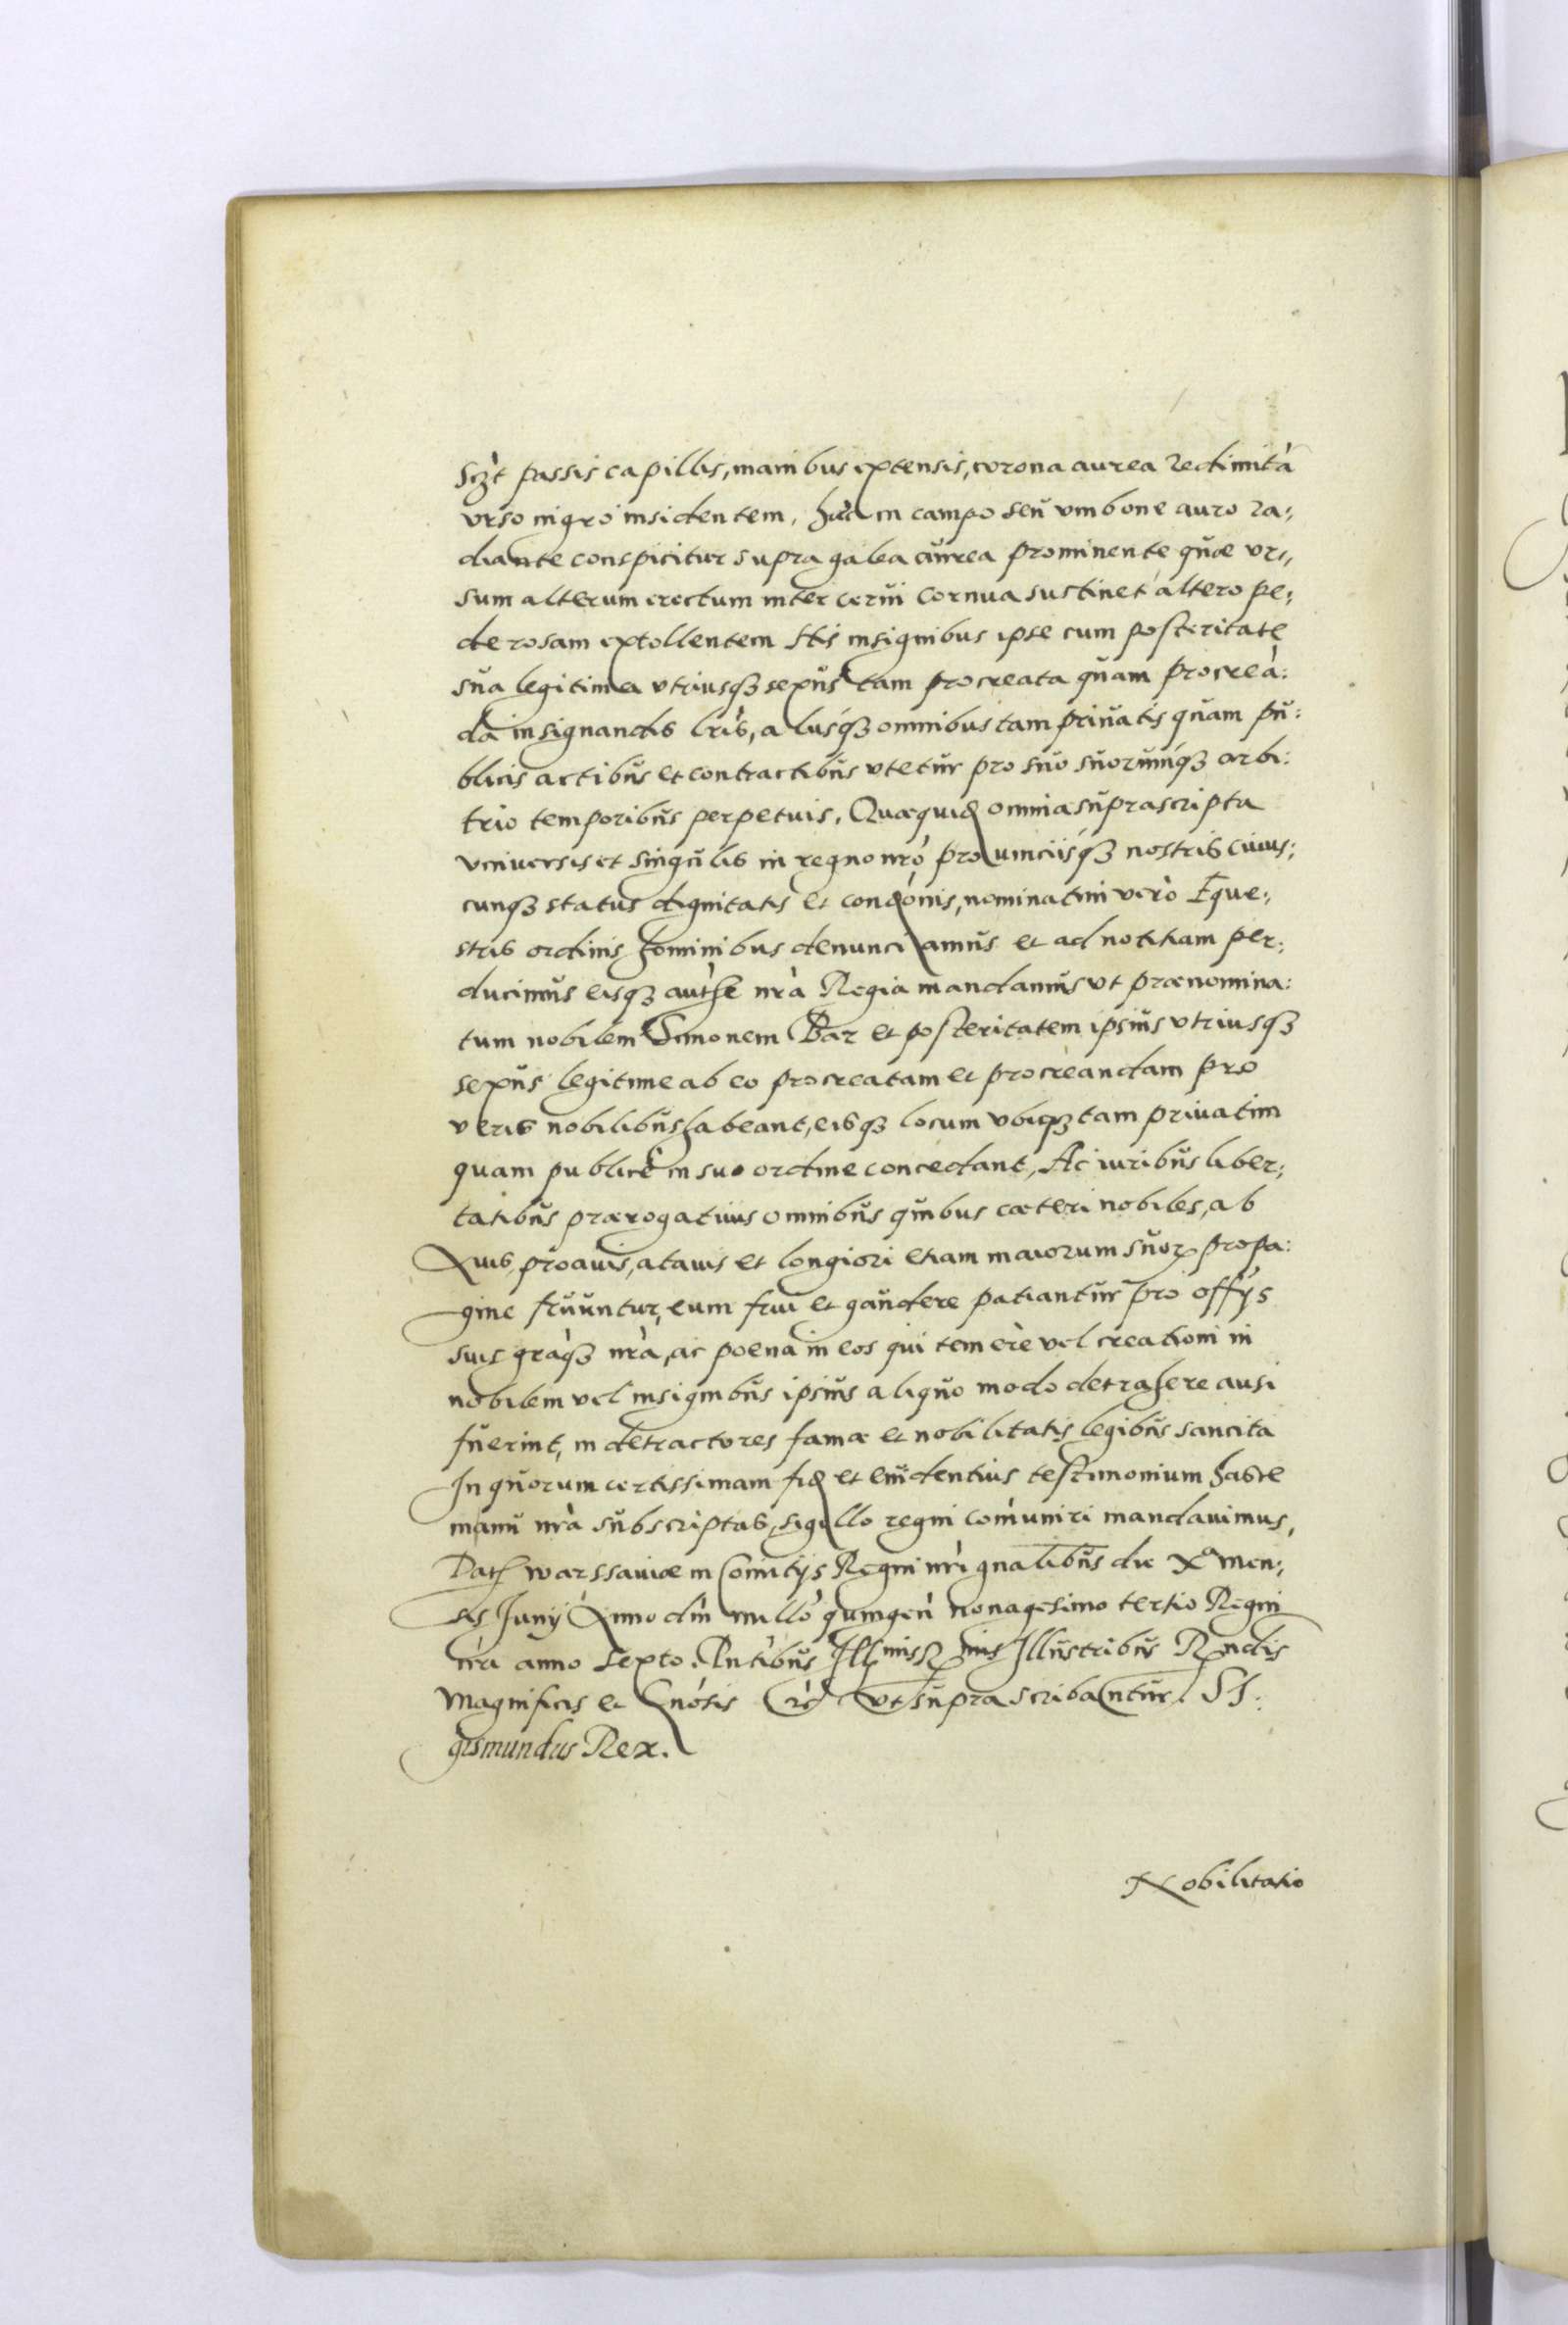 Sczt passis capillis, manibus extensis, corona aurea redimità
vrso nigro insidentem, hæc in campo seu vmbone auro ra:
diante conspicitur supra galea aurea prominente quæ vr:
sum alterum erectum inter cerui cornua sustinet altero pe:
de rosam extollentem His insignibus ipse cum posteritate
sua legitima vtriusq3 sexus tam procreata quam procreà:
da in signandis lris, aliisq3 omnibus tam priuatis quam pu:
blicis actibus et contractibus vtetur pro suo suorumq3 arbi:
trio temporibus perpetuis. Quæquid omnia suprascripta
vniuersis et singulis in regno nrò prouinciisq3 nostris cuius:
cunq3 status dignitatis et condònis, nominatim verò Eque:
stris ordinis hominibus denunciamus et ad notitiam per:
ducimus eisq3 autħe nrà Regia mandamus vt prænomina:
tum nobilem Simonem Bar et posteritatem ipsius vtriusq3
sexus legitime ab eo procreatam et procreandam pro
veris nobilibus habeant, eisq3 locum vbiq3 tam priuatim
quam publicè in suo ordine concedant, Ac iuribus liber:
tatibus prærogatiuis omnibus quibus cæteri nobiles, ab
Auis, proauis, atauis et longiori etiam maiorum suor propa:
gine fruuntur, eum frui et gaudere patiantur pro offys
suis graq3 nrà, ac poena in eos qui temerè vel creationi in
nobilem vel insignibus ipsius aliquo modo detrahere ausi
fuerint, in detractores famæ et nobilitatis legibus sancita
In quorum certissimam fid et euidentius testimonium hasce
manu nrà subscriptas, sigillo regni comuniri mandauimus,
Dat warssauiæ in Comitÿs Regni nri gnalibus die Xa men:
sis Junÿ Anno dni millo quingen nonagesimo tertio Regni
nri anno sexto. Pntibus Illmis Rmis Illustribus Rndis
Magnificis et Gnòsis etc vt supra scribantur. SI:
gismundus Rex.
Nobilitatio